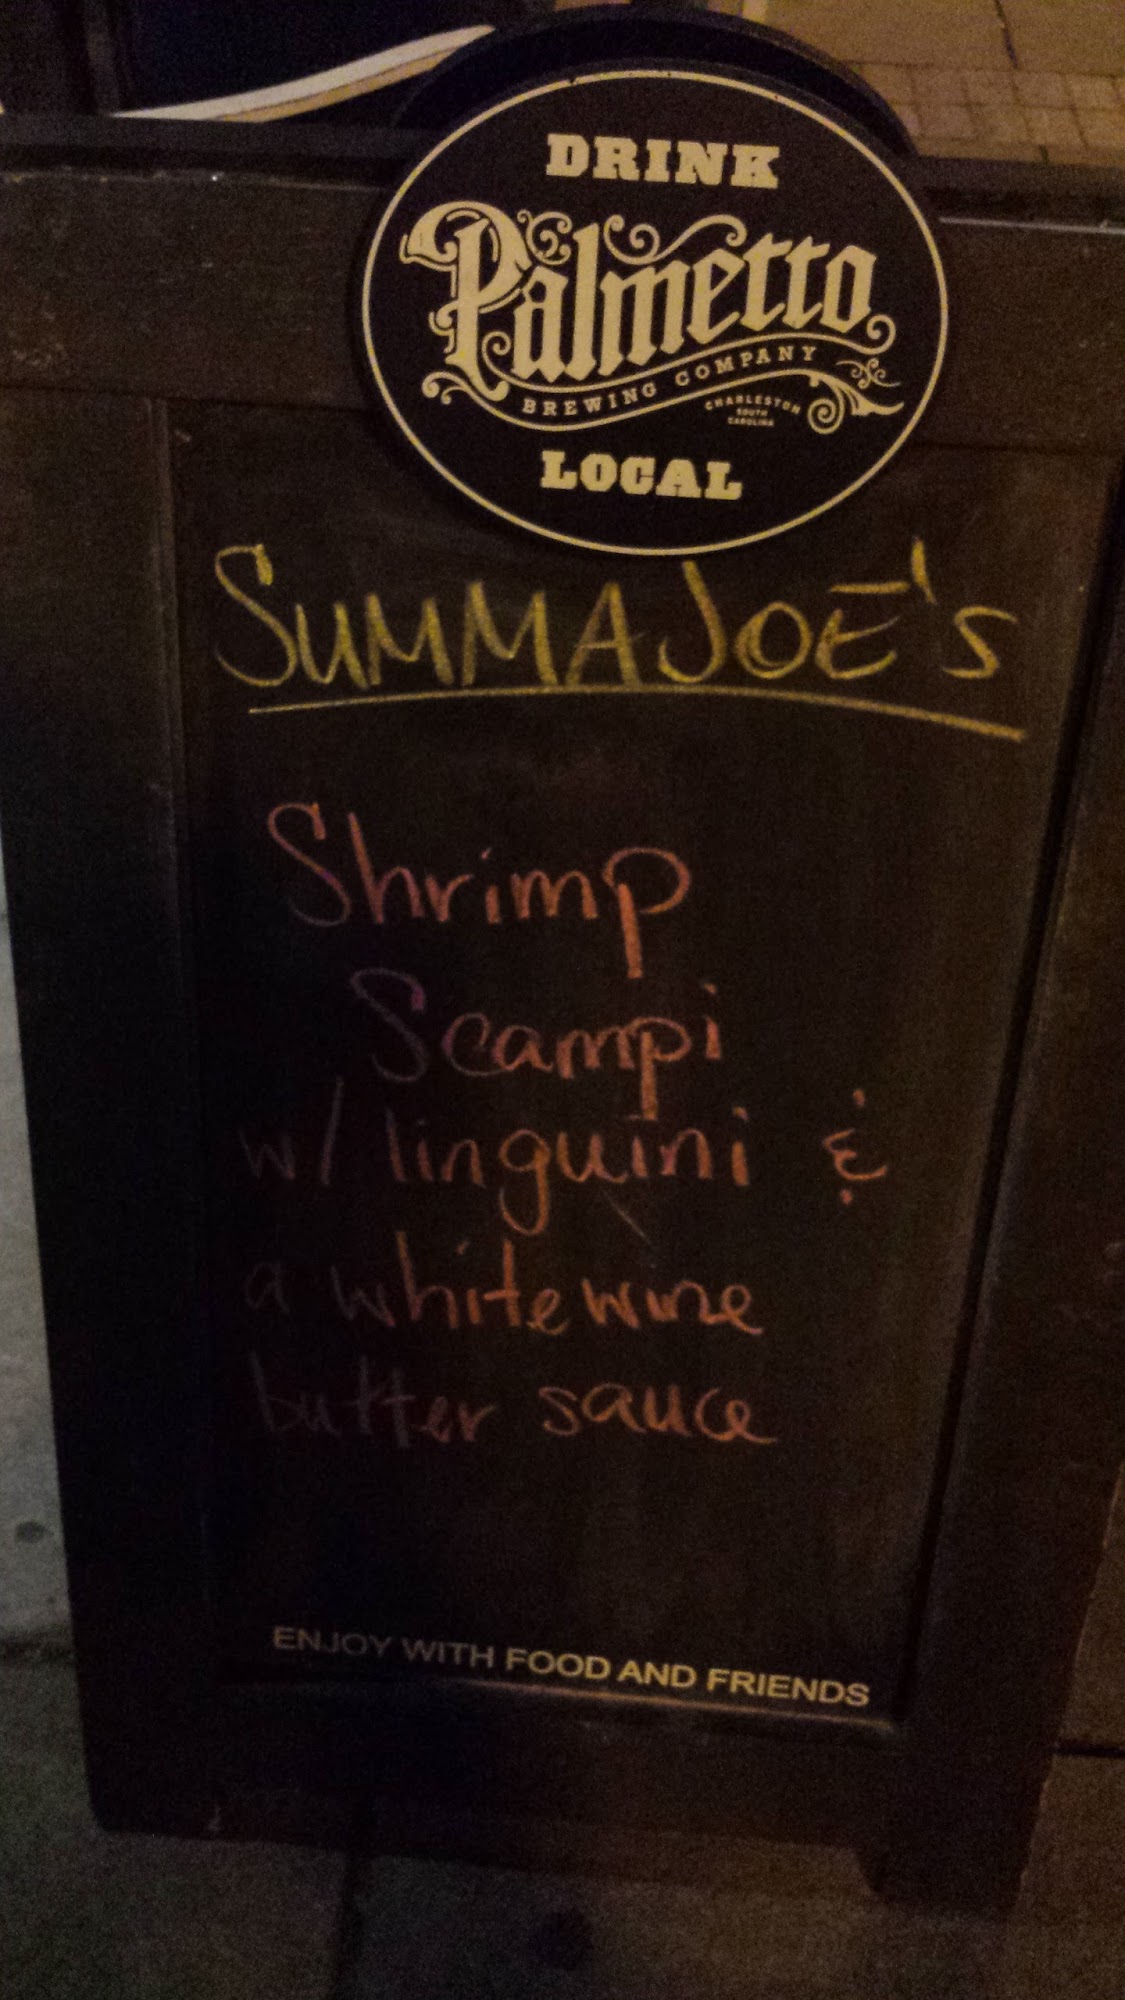 DRINK
Palmetto
BREWING COMPANY
CHARLESTON
SOUTH
CAROLINA
LOCAL
SUMMAJOE'S
Shrimp
Scampi
w/ linguini &
a white wine
butter sauce
ENJOY WITH FOOD AND FRIENDS